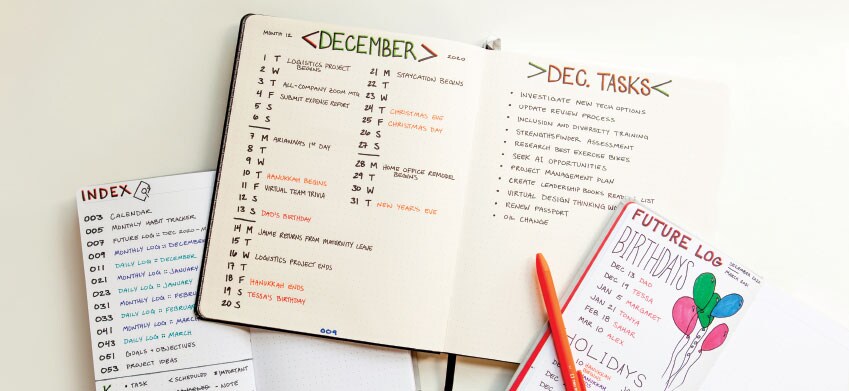 MONTH 12
<DECEMBER>
2020
1 T LOGISTICS PROJECT BEGINS
2 W
3 T ALL-COMPANY ZOOM MTG
4 F SUBMIT EXPENSE REPORT
5 S
6 S
7 M ARIANNA'S 1ST DAY
8 T
9 W
10 T HANUKKAH BEGINS
11 F VIRTUAL TEAM TRIVIA
12 S
13 S DAD'S BIRTHDAY
14 M JAIME RETURNS FROM MATERNITY LEAVE
15 T
16 W LOGISTICS PROJECT ENDS
17 T
18 F HANUKKAH ENDS
19 S TESSA'S BIRTHDAY
20 S
21 M STAYCATION BEGINS
22 T
23 W
24 T CHRISTMAS EVE
25 F CHRISTMAS DAY
26 S
27 S
28 M HOME OFFICE REMODEL BEGINS
29 T
30 W
31 T NEW YEAR'S EVE
009
>DEC. TASKS<
• INVESTIGATE NEW TECH OPTIONS
• UPDATE REVIEW PROCESS
• INCLUSION AND DIVERSITY TRAINING
• STRENGTHSFINDER ASSESSMENT
• RESEARCH BEST EXERCISE BIKES
• SEEK AI OPPORTUNITIES
• PROJECT MANAGEMENT PLAN
• CREATE LEADERSHIP BOOKS LIST
• VIRTUAL DESIGN THINKING
• RENEW PASSPORT
• OIL CHANGE
INDEX
003 CALENDAR
005 MONTHLY HABIT TRACKER
007 FUTURE LOG = DEC 2020 - M
009 MONTHLY LOG = DECEMBER
011 DAILY LOG = DECEMBER
021 MONTHLY LOG = JANUARY
023 DAILY LOG = JANUARY
031 MONTHLY LOG = FEBRU
033 DAILY LOG = FEBRUAR
041 MONTHLY LOG = MARCH
043 DAILY LOG = MARCH
051 GOALS + OBJECTIVES
053 PROJECT IDEAS
• TASK < SCHEDULED * IMPORTANT
- NOTE
FUTURE LOG
DECEMBER 2020
MARCH 2021
BIRTHDAYS
DEC 13 DAD
DEC 19 TESSA
JAN 5 MARGARET
JAN 21 TONYA
FEB 18 SAHAR
MAR 10 ALEX
HOLIDAYS
HANUKKAH BEGINS